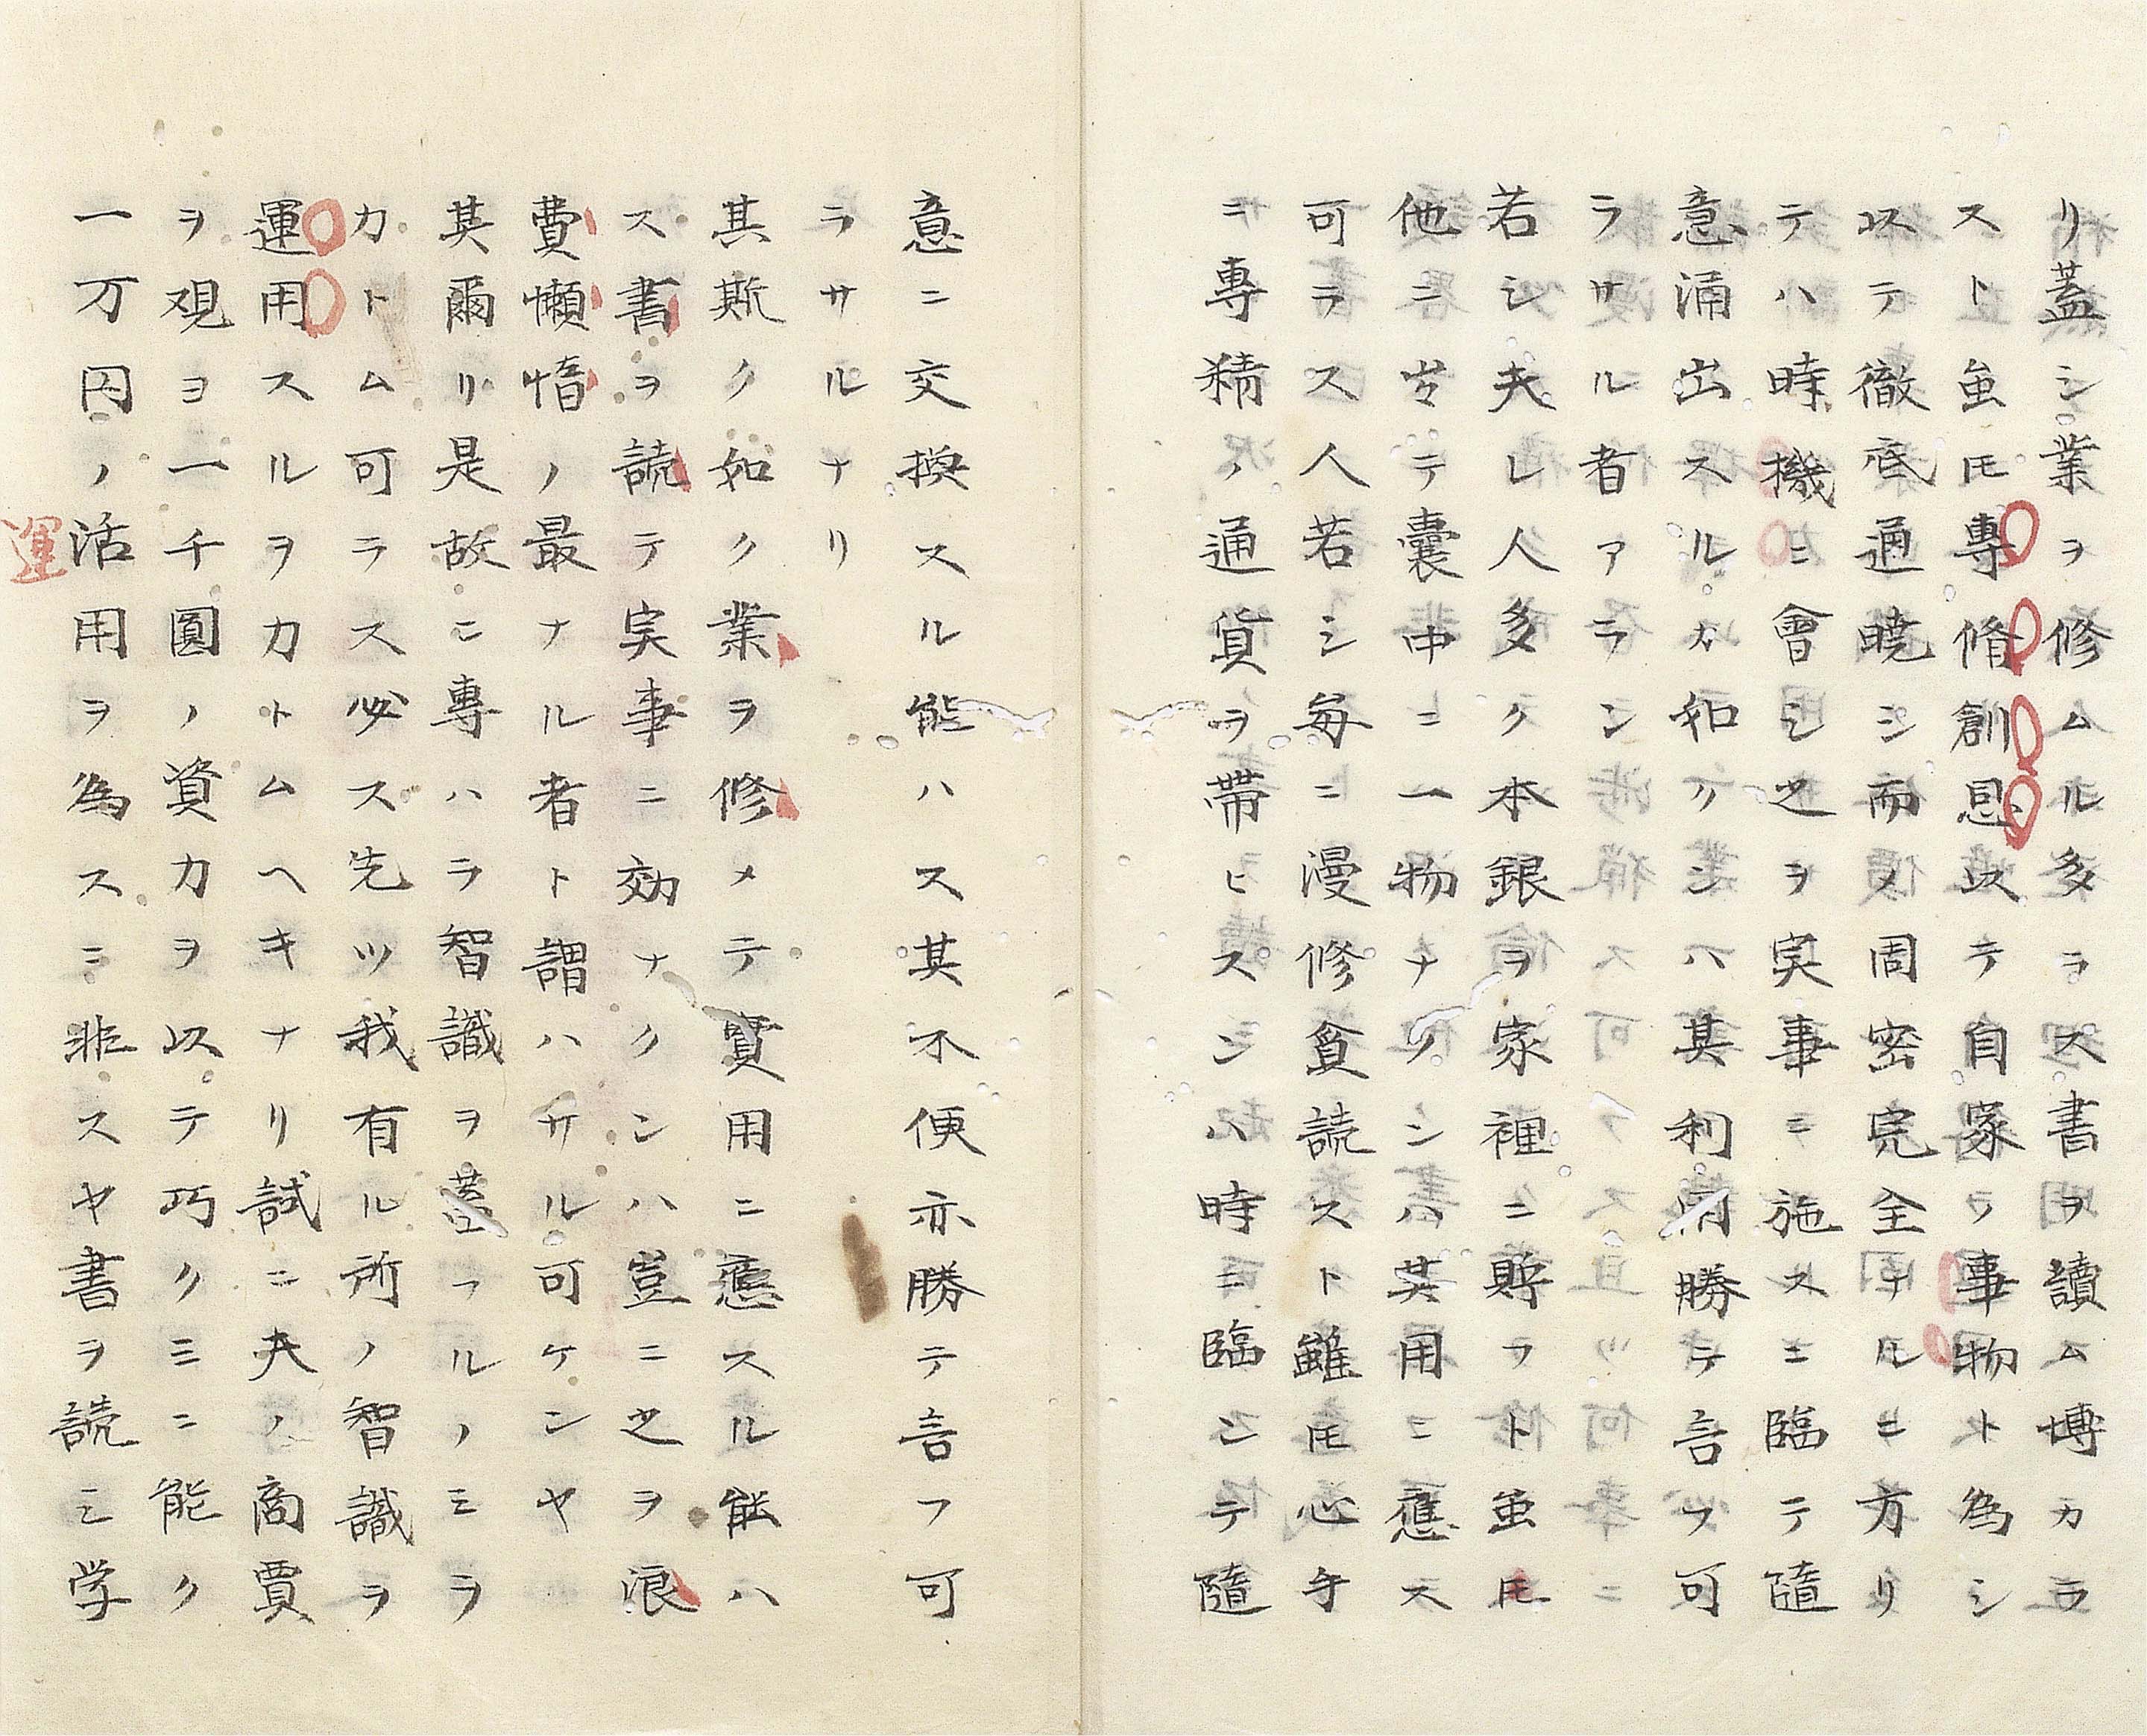 リ蓋シ業ヲ修ムル多ヲス書ヲ讀ム博カラ
スト虽𪜈專脩創思以テ自家ノ事物ト為シ
以テ徹底通暁シ而〆周密完全ナルニ方リ
テハ時機ニ會シ之ヲ実事ニ施スニ臨テ隨
意涌出スルカ如クンハ其利用勝テ言フ可
ラサル者アラン
若シ夫レ人多ク本銀ヲ家裡ニ貯フト虽𪜈
他ニ出テ囊中ニ一物ナクンハ其用ニ應ス
可ラス人若シ毎ニ漫修貧読スト雖𪜈心手
ニ專精ノ通貨ヲ帯ヒスンハ時ニ臨ンテ隨
意ニ交換スル能ハス其不便亦勝テ言フ可
ラサルナリ
其斯ク如ク業ヲ修メテ實用ニ應スル能ハ
ス書ヲ読テ実事ニ効ナクンハ豈ニ之ヲ浪
費懶惰ノ最ナル者ト謂ハサル可ケンヤ
其爾リ是故ニ專ハラ智識ヲ蓄フルノミラ
カトム可ラス必ス先ツ我有ル所ノ智識ヲ
運用スルヲカトムヘキナリ試ニ夫ノ商賈
ヲ观ヨ一千圓ノ資力ヲ以テ巧クミニ能ク
一万円ノ活用ヲ為スニ非スヤ書ヲ読ミ学
運